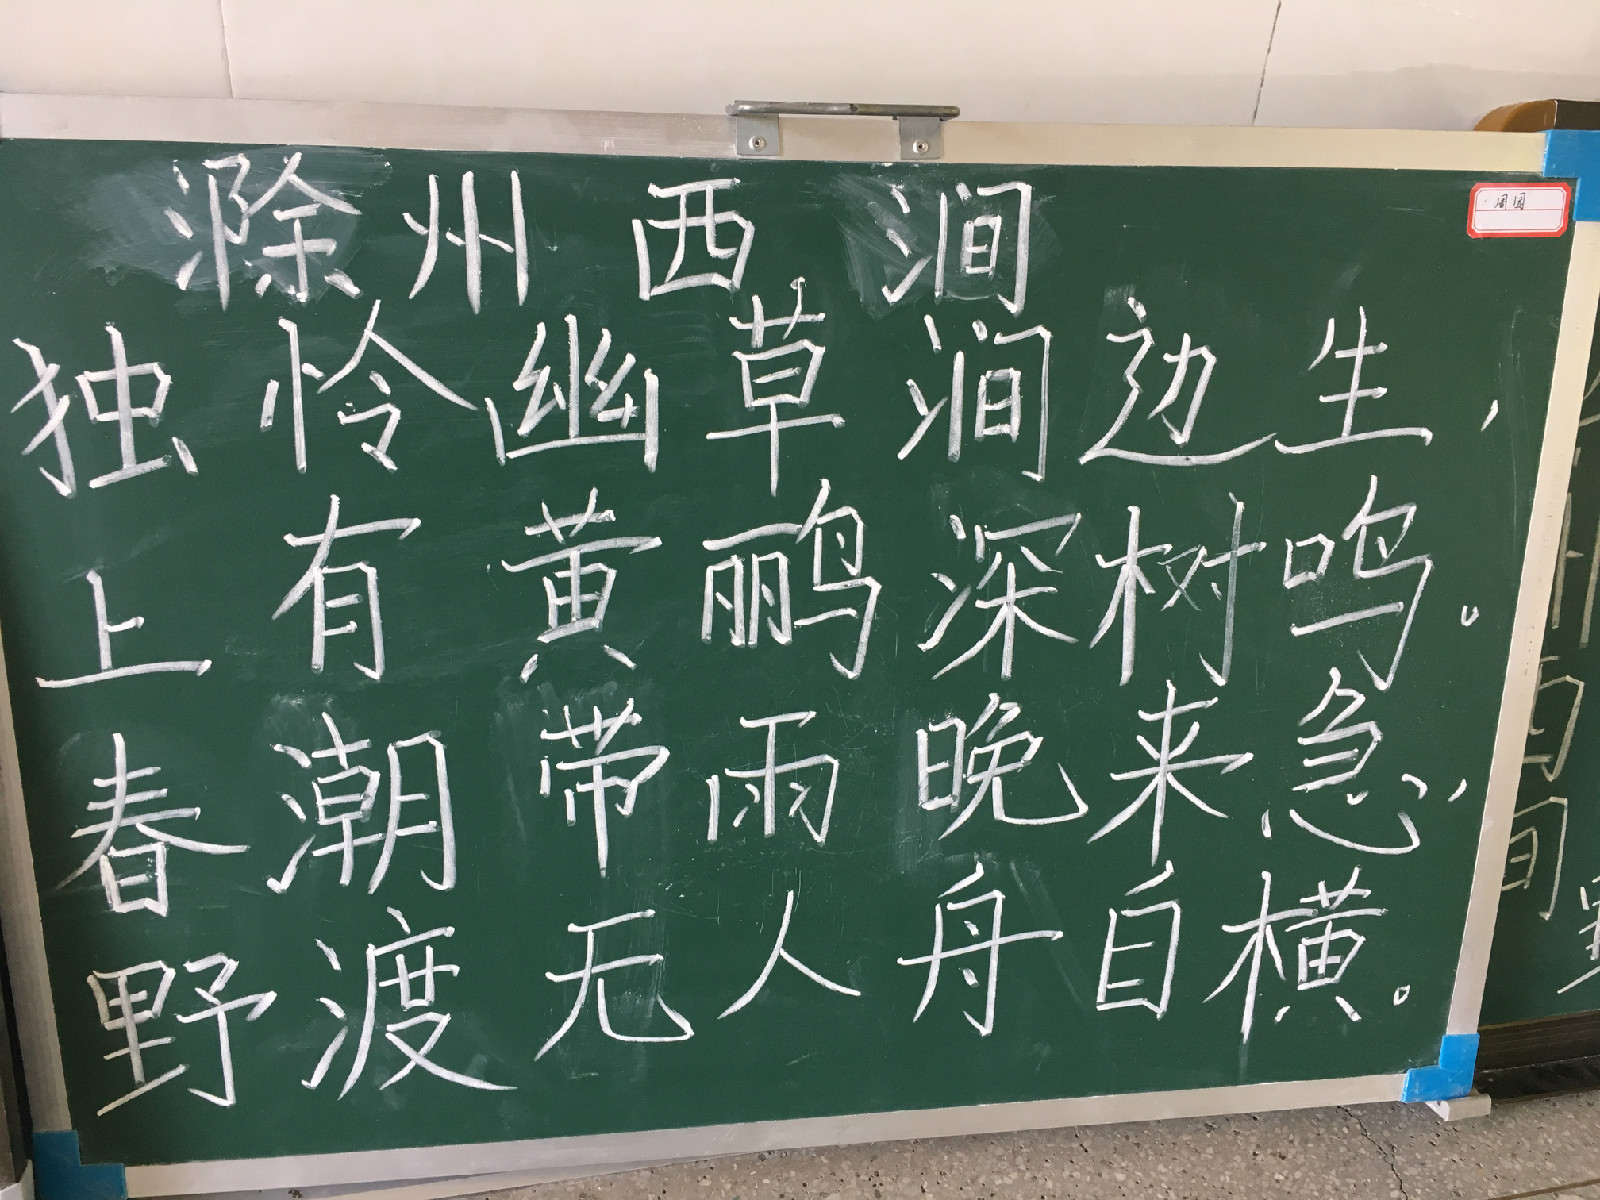 滁州西涧
独怜幽草涧边生，
上有黄鹂深树鸣。
春潮带雨晚来急，
野渡无人舟自横。
周园